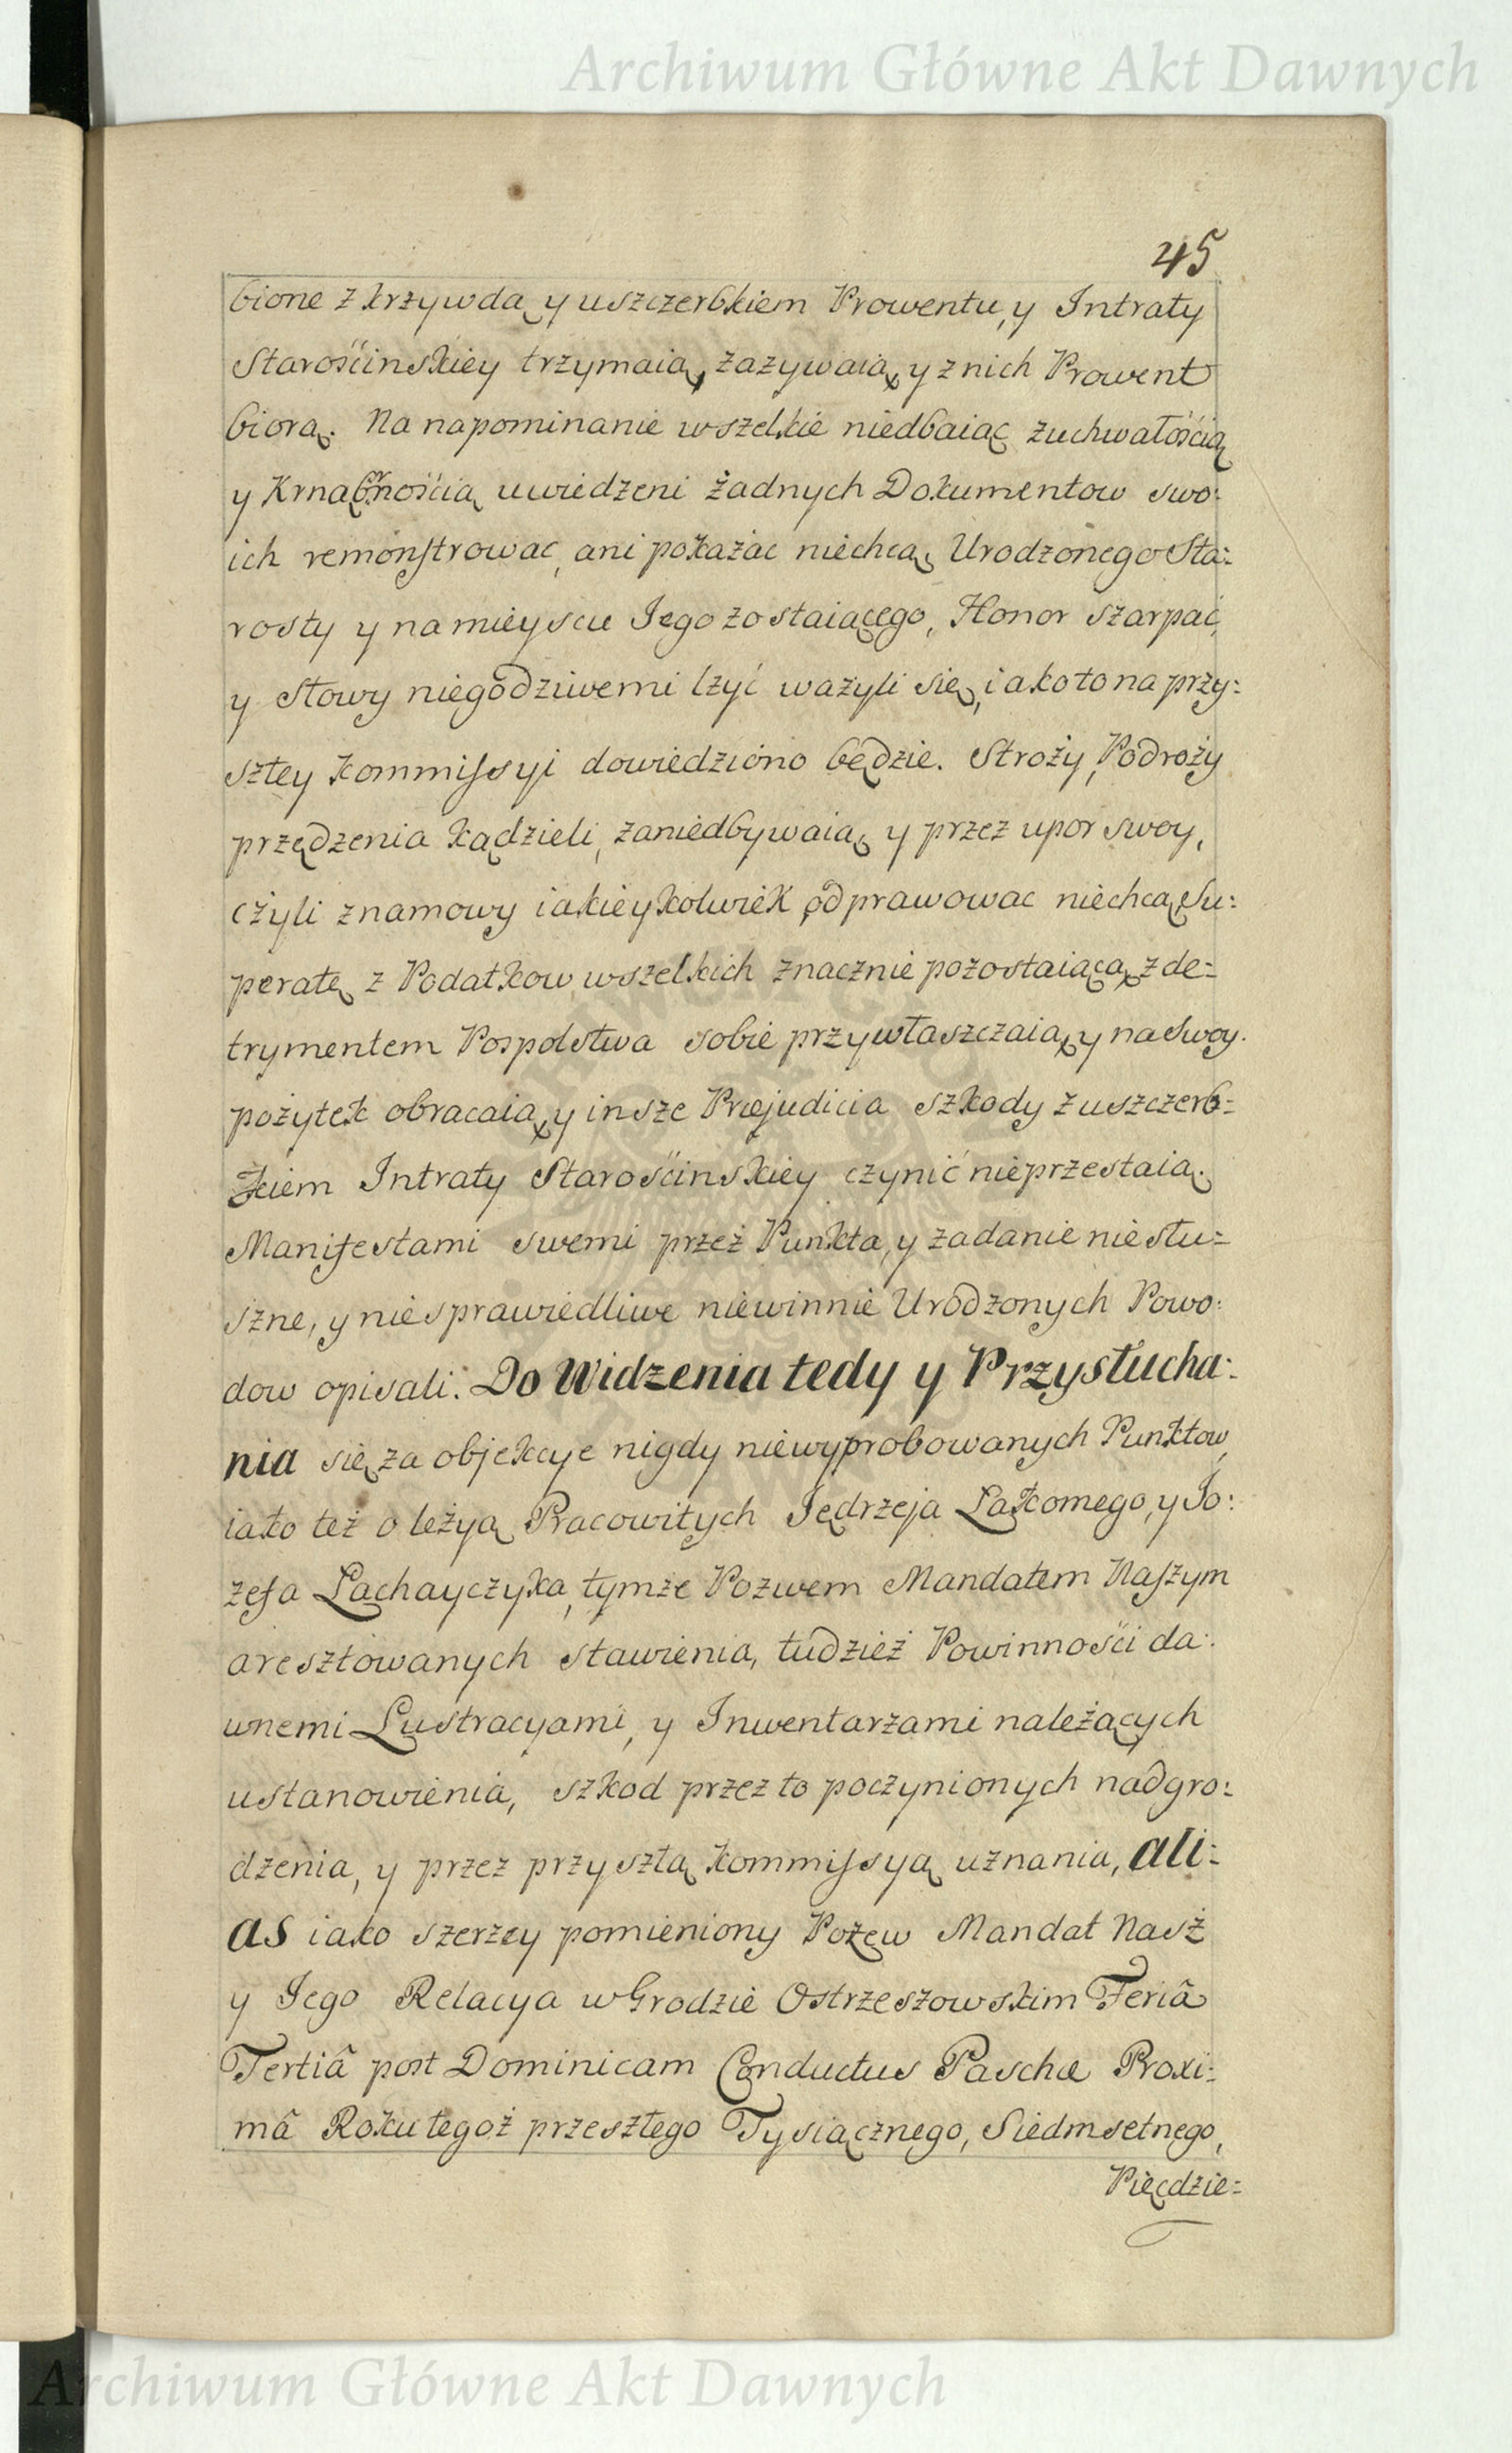 Archiwum Główne Akt Dawnych
45
bione z krzywdą y uszczerbkiem Prowentu, y Intraty
Starościnskiey trzymaią, zazywaią, y z nich Prowent
biorą. Na napominanie wszelkie niedbaiąc zuchwałością
y Krnąbrnością uwiedzeni żadnych Dokumentow swo:
ich remonstrowac, ani pokażac niechcą, Urodzonego Sta:
rosty y na mieyscu Jego zostaiącego, Honor szarpać,
y słowy niegodziwemi lżyć ważyli się, iako to na przy:
szłey Kommissyi dowiedziono będzie. Stroży, Podroży
przędzenia kądzieli, zaniedbywaią, y przez upor swoy,
czyli z namowy iakieykolwiek odprawowac niechcą, Su:
peratę z Podatkow wszelkich znacznie pozostaiącą, z de=
trymentem Pospolstwa sobie przywłaszczaią, y na swoy
pożytek obracaią, y insze Præjudicia szkody z uszczerb=
kiem Intraty Starościnskiey czynić nieprzestaią.
Manifestami swemi przez Punkta, y zadanie niesłu=
szne, y niesprawiedliwe niewinnie Urodzonych Powo:
dow opisali. Do Widzenia tedy y Przysłucha:
nia się za objekcye nigdy niewyprobowanych Punktow,
iako też o leżyą Pracowitych Jędrzeja Łakomego, y Jo:
zefa Lachayczyka, tymże Pozwem Mandatem Naszym
aresztowanych stawienia, tudzież Powinności da:
wnemi Lustracyami, y Inwentarzami należących
ustanowienia, szkod przez to poczynionych nadgro:
dzenia, y przez przyszłą Kommissyą uznania, ali:
as iako szerzey pomieniony Pozew Mandat Nasz
y Jego Relacya w Grodzie Ostrzeszowskim Feriâ
Tertiâ post Dominicam Conductus Paschæ Proxi:
mâ Roku tegoż przeszłego Tysiącznego, Siedmsetnego,
Pięcdzie=
Archiwum Główne Akt Dawnych